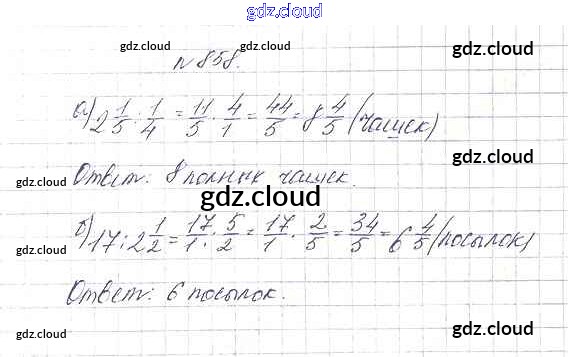 gdz.cloud
gdz.cloud gdz.cloud
gdz.cloud
№ 858.
gdz.cloud
а) 2 1/5 : 1/4 = 11/5 · 4/1 = 44/5 = 8 4/5 (чашек)
gdz.cloud
gdz.cloud
Ответ: 8 полных чашек.
gdz.cloud
gdz.cloud
б) 17 : 2 1/2 = 17/1 : 5/2 = 17/1 · 2/5 = 34/5 = 6 4/5 (посылок)
gdz.cloud
gdz.cloud
Ответ: 6 посылок.
gdz.cloud
gdz.cloud
gdz.cloud